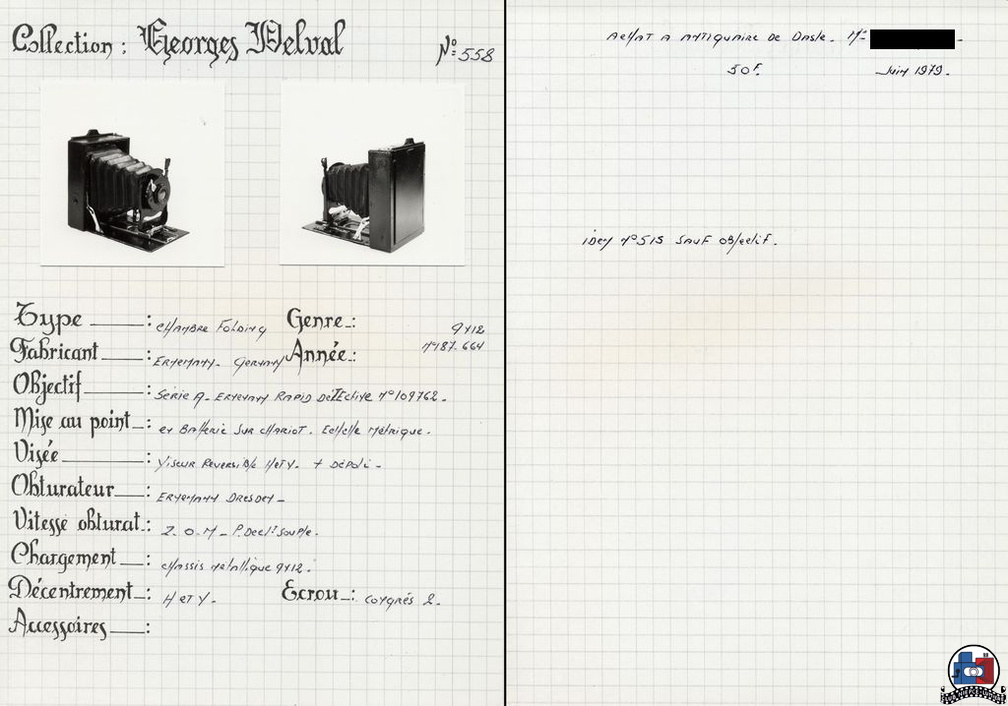 Collection : Georges Delval N°: 558
Type : CHAMBRE FOLDING Genre : 9x12
Fabricant : ERNEMANN - GERMANY Année : N°187.664
Objectif : SERIE A - ERNEMANN RAPID DéTEctive N°109762.
Mise au point : en Batterie SUR CHARIOT. Echelle Métrique.
Visée : Viseur Reversible H et V. + Dépoli -
Obturateur : ERNEMANN DRESDEN -
Vitesse obturat : Z.O.M - P. Declt Souple.
Chargement : chassis métallique 9x12.
Décentrement : H ET V. Ecrou : congrés 2.
Accessoires :
ACHAT A ANTIQUAIRE DE
50F. Juin 1979.
iDEM N°515 SAUF Objectif.